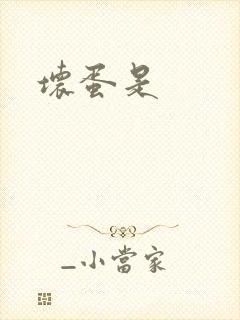 壞蛋是
_小當家